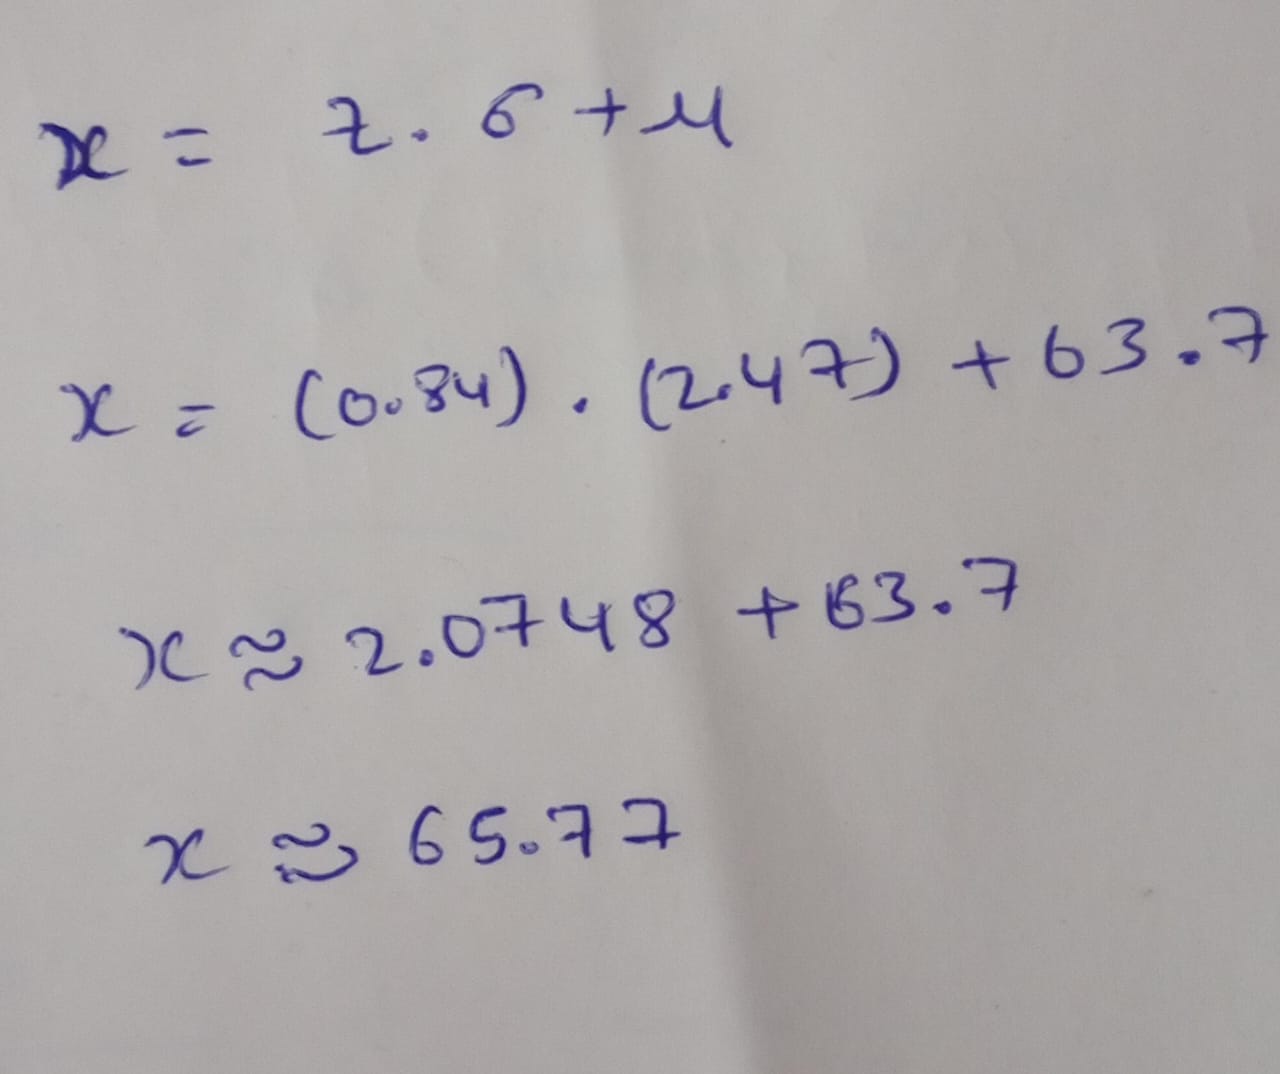 x = z . σ + μ
x = (0.84) . (2.47) + 63.7
x ≈ 2.0748 + 63.7
x ≈ 65.77